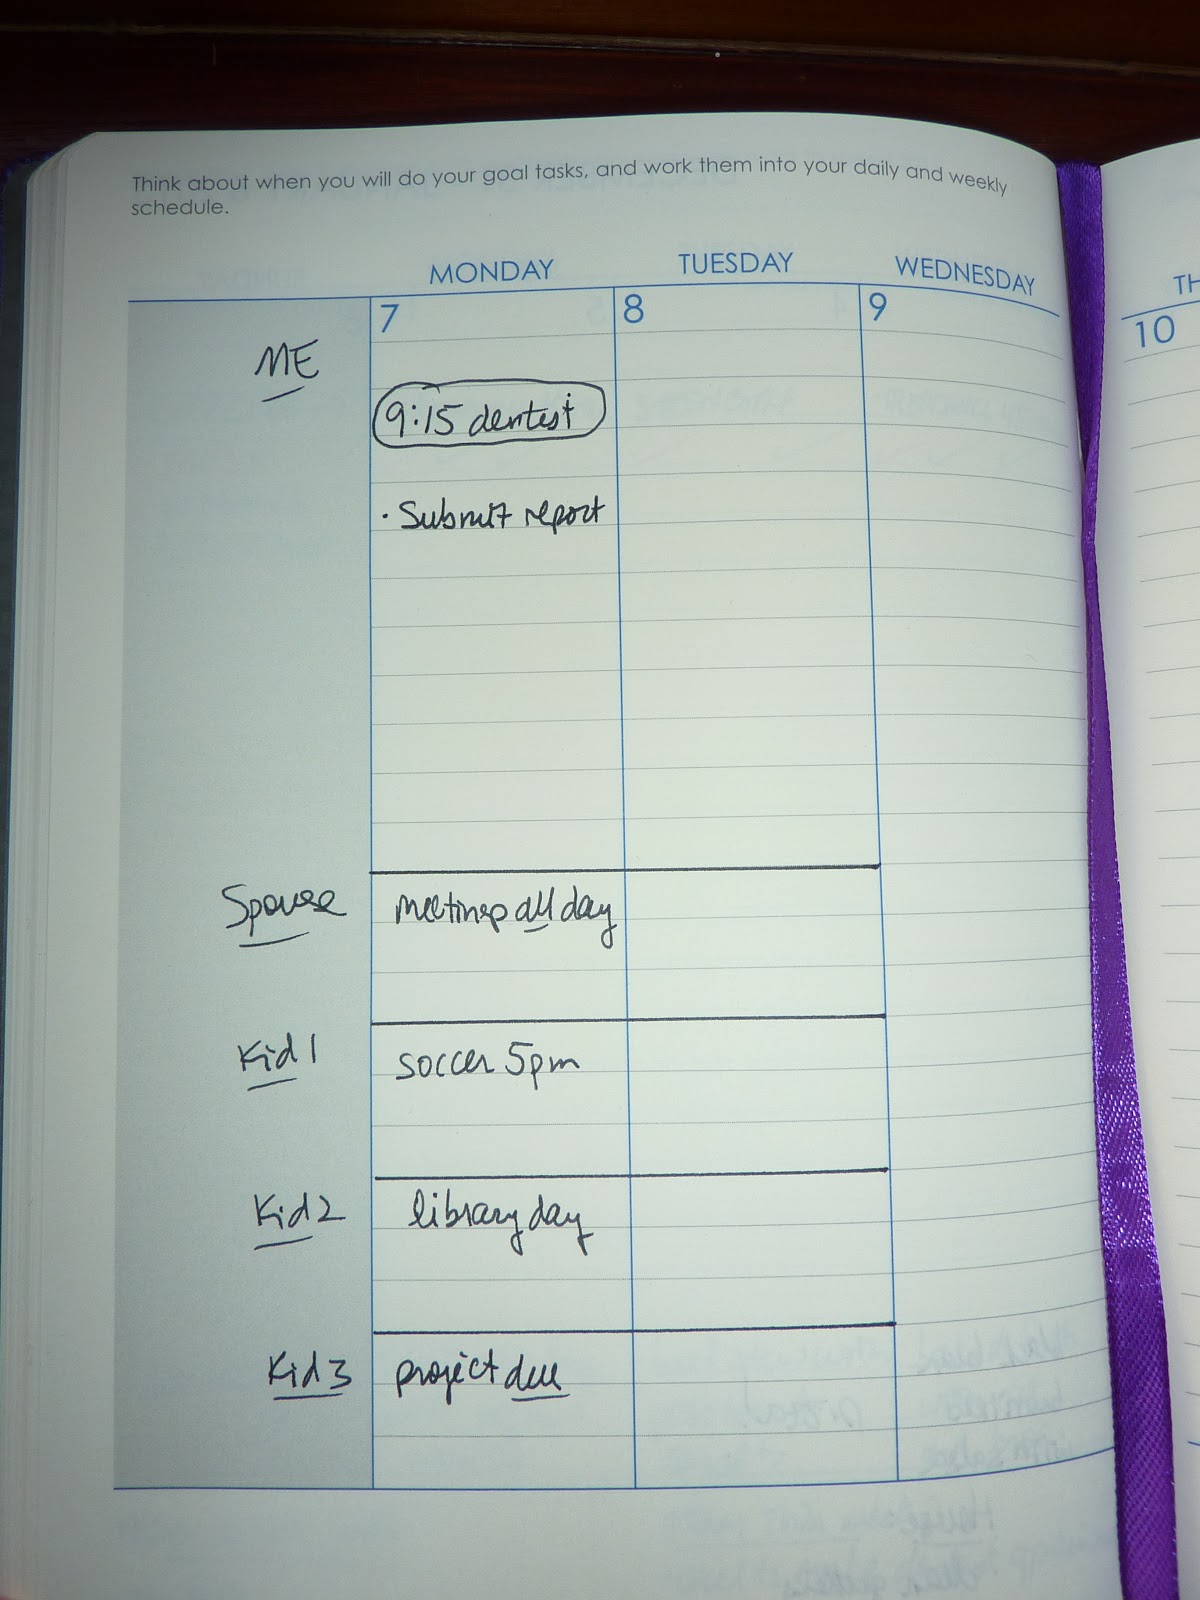 Think about when you will do your goal tasks, and work them into your daily and weekly
schedule.
MONDAY TUESDAY WEDNESDAY TH
7 8 9 10
ME
9:15 dentist
· Submit report
Spouse meetings all day
Kid 1 soccer 5pm
Kid 2 library day
Kid 3 project due